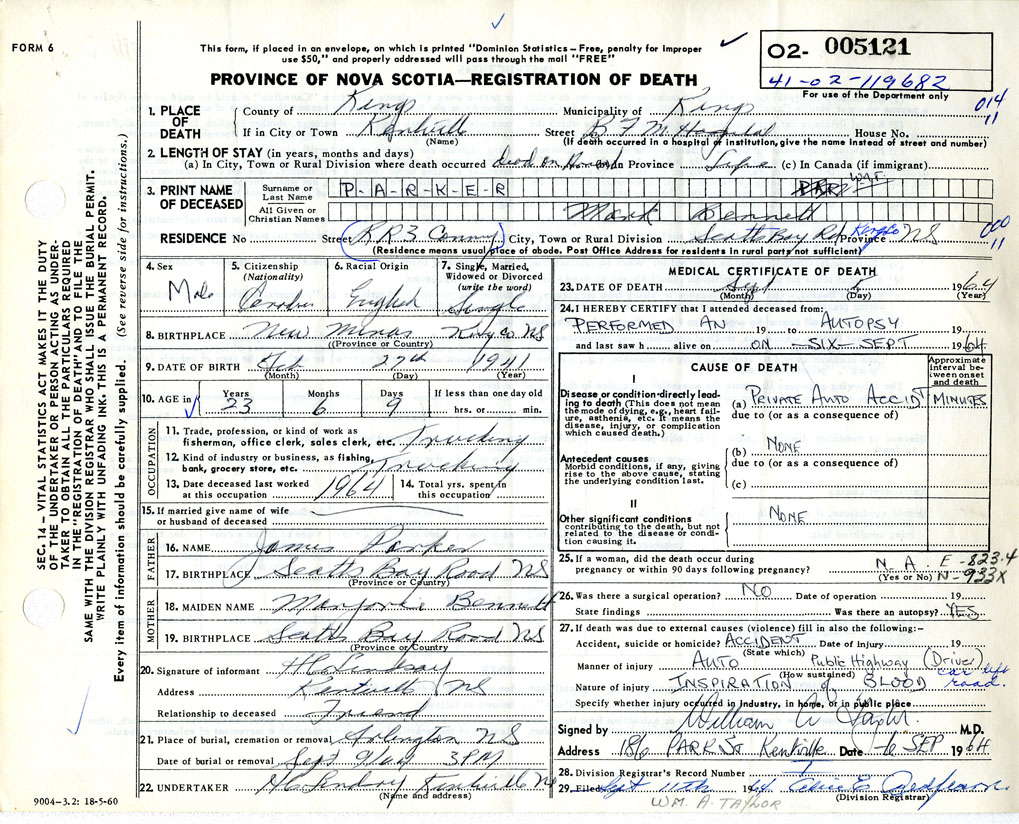 FORM 6
This form, if placed in an envelope, on which is printed "Dominion Statistics – Free, penalty for improper
use $50," and properly addressed will pass through the mail "FREE"
PROVINCE OF NOVA SCOTIA—REGISTRATION OF DEATH
O2- 005121
41-02-119682
For use of the Department only
014
11
1. PLACE OF DEATH
County of Kings Municipality of Kings
If in City or Town Kentville Street B F M Hospital House No.
(Name) (If death occurred in a hospital or institution, give the name instead of street and number)
2. LENGTH OF STAY (in years, months and days)
(a) In City, Town or Rural Division where death occurred dead on In Province Life (c) In Canada (if immigrant)
3. PRINT NAME OF DECEASED
Surname or Last Name P-A-R-K-E-R
All Given or Christian Names Mark Bennett
RESIDENCE No Street RR3 City, Town or Rural Division Scotts Bay Rd Kings Co Province NS
000
11
(Residence means usual place of abode. Post Office Address for residents in rural parts not sufficient)
4. Sex Male
5. Citizenship (Nationality)
6. Racial Origin English
7. Single, Married, Widowed or Divorced (write the word) Single
8. BIRTHPLACE New Minas Kings Co NS
(Province or Country)
9. DATE OF BIRTH Feb 27th 1941
(Month) (Day) (Year)
10. AGE in Years 23 Months 6 Days 9 If less than one day old hrs. or min.
OCCUPATION
11. Trade, profession, or kind of work as fisherman, office clerk, sales clerk, etc. Trucking
12. Kind of industry or business, as fishing, bank, grocery store, etc. Trucking
13. Date deceased last worked at this occupation 1964 14. Total yrs. spent in this occupation
15. If married give name of wife or husband of deceased
FATHER
16. NAME James Parker
17. BIRTHPLACE Scotts Bay Road NS
(Province or Country)
MOTHER
18. MAIDEN NAME Marjorie Bennett
19. BIRTHPLACE Scotts Bay Road NS
(Province or Country)
20. Signature of informant H C Lindsay
Address Kentville NS
Relationship to deceased Friend
21. Place of burial, cremation or removal Arlington NS
Date of burial or removal Sept 9/64 3 PM
22. UNDERTAKER H C Lindsay Kentville NS
(Name and address)
MEDICAL CERTIFICATE OF DEATH
23. DATE OF DEATH Sept 5 1964
(Month) (Day) (Year)
24. I HEREBY CERTIFY that I attended deceased from:
PERFORMED AN 19 to AUTOPSY 19
and last saw h alive on ON –SIX– SEPT 1964
CAUSE OF DEATH
Approximate interval between onset and death
I
Disease or condition directly leading to death (This does not mean the mode of dying, e.g., heart failure, asthenia, etc. It means the disease, injury, or complication which caused death.)
(a) PRIVATE AUTO ACCIDT MINUTES
due to (or as a consequence of)
Antecedent causes
Morbid conditions, if any, giving rise to the above cause, stating the underlying condition last.
(b) NONE
due to (or as a consequence of)
(c)
II
Other significant conditions contributing to the death, but not related to the disease or condition causing it.
NONE
25. If a woman, did the death occur during pregnancy or within 90 days following pregnancy? N.A.
(Yes or No)
E-823.4
N-933X
26. Was there a surgical operation? NO Date of operation 19
State findings Was there an autopsy? YES
27. If death was due to external causes (violence) fill in also the following:–
Accident, suicide or homicide? ACCIDENT Date of injury 19
(State which)
Manner of injury AUTO Public Highway (Driver)
(How sustained)
car left road.
Nature of injury INSPIRATION of BLOOD
Specify whether injury occurred in industry, in home, or in public place
Signed by William A Taylor M.D.
Address 186 PARK ST Kentville Date 6 SEP 1964
28. Division Registrar's Record Number
29. Filed Sept 11th 1964
(Division Registrar)
WM. A. TAYLOR
SEC. 14 – VITAL STATISTICS ACT MAKES IT THE DUTY
OF THE UNDERTAKER OR PERSON ACTING AS UNDER-
TAKER TO OBTAIN ALL THE PARTICULARS REQUIRED
IN THE "REGISTRATION OF DEATH" AND TO FILE THE
SAME WITH THE DIVISION REGISTRAR WHO SHALL ISSUE THE BURIAL PERMIT.
WRITE PLAINLY WITH UNFADING INK. THIS IS A PERMANENT RECORD.
Every item of information should be carefully supplied. (See reverse side for instructions.)
9004-3.2: 18-5-60